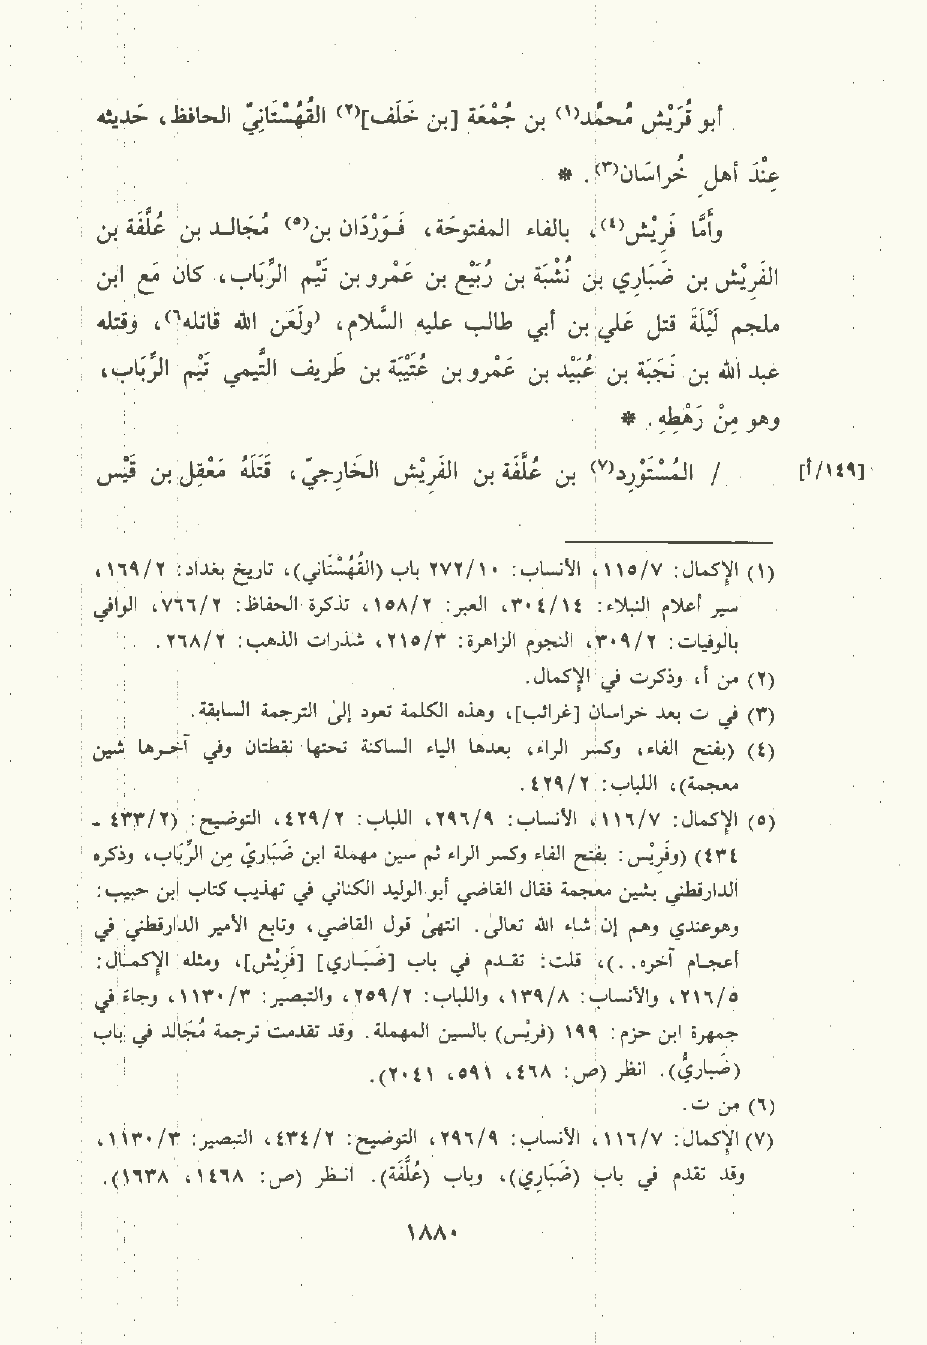 أبو قُرَيْش مُحمَّد(١) بن جُمْعَة [بن خَلَف](٢) القُهُسْتَانِيّ الحافظ، حَديثه
عِنْدَ أهلِ خُراسَان(٣). *
وأمَّا فَرِيْش(٤)، بالفاء المفتوحَة، فَـوَرْدَان بن(٥) مُجَالـد بن عُلَّفَة بن
الفَرِيْش بن ضَبَاري بن نُشْبَة بن رُبَيْع بن عَمْرو بن تَيْم الرِّبَاب، كان مَع ابن
ملجم لَيْلَةَ قتل عَلي بن أبي طالب عليه السَّلام، (ولَعَن الله قاتله٦)، وقتله
عبد الله بن نَجَبَة بن عُبَيْد بن عَمْرو بن عُتَيْبَة بن طَريف التَّيمي تَيْم الرِّباب،
وهو مِنْ رَهْطِهِ. *
[١٤٩/أ] / المُسْتَوْرِد(٧) بن عُلَّفَة بن الفَرِيْش الخَارِجيّ، قَتَلَهُ مَعْقِل بن قَيْس
(١) الإكمال: ٧/١١٥، الأنساب: ١٠/٢٧٢ باب (القُهُسْتَاني)، تاريخ بغداد: ٢/١٦٩،
سير أعلام النبلاء: ١٤/٣٠٤، العبر: ٢/١٥٨، تذكرة الحفاظ: ٢/٧٦٦، الوافي
بالوفيات: ٢/٣٠٩، النجوم الزاهرة: ٣/٢١٥، شذرات الذهب: ٢/٢٦٨.
(٢) من أ، وذكرت في الإكمال.
(٣) في ت بعد خراسان [غرائب]، وهذه الكلمة تعود إلى الترجمة السابقة.
(٤) (بفتح الفاء، وكسر الراء، بعدها الياء الساكنة تحتها نقطتان وفي آخـرها شين
معجمة)، اللباب: ٢/٤٢٩.
(٥) الإكمال: ٧/١١٦، الأنساب: ٩/٢٩٦، اللباب: ٢/٤٢٩، التوضيح: (٢/٤٣٣ ـ
٤٣٤) (وفَرِيْس: بفتح الفاء وكسر الراء ثم سين مهملة ابن ضَبَاريّ مِن الرِّبَاب، وذكره
الدارقطني بشين معجمة فقال القاضي أبو الوليد الكناني في تهذيب كتاب ابن حبيب:
وهوعندي وهم إن شاء الله تعالىٰ. انتهىٰ قول القاضي، وتابع الأمير الدارقطني في
إعجام آخره..)، قلت: تقـدم في باب [ضَبَـاري] [فَرِيْش]، ومثله الإكمـال:
٥/٢١٦، والأنساب: ٨/١٣٩، واللباب: ٢/٢٥٩، والتبصير: ٣/١١٣٠، وجاءَ في
جمهرة ابن حزم: ١٩٩ (فريْس) بالسين المهملة. وقد تقدمت ترجمة مُجَالد في باب
(ضَبَاريُّ). انظر (ص: ٤٦٨، ٥٩١، ٢٠٤١).
(٦) من ت.
(٧) الإكمال: ٧/١١٦، الأنساب: ٩/٢٩٦، التوضيح: ٢/٤٣٤، التبصير: ٣/١١٣٠،
وقد تقدم في باب (ضَبَارِي)، وباب (عُلَّفَة). انـظر (ص: ١٤٦٨، ١٦٣٨).
١٨٨٠